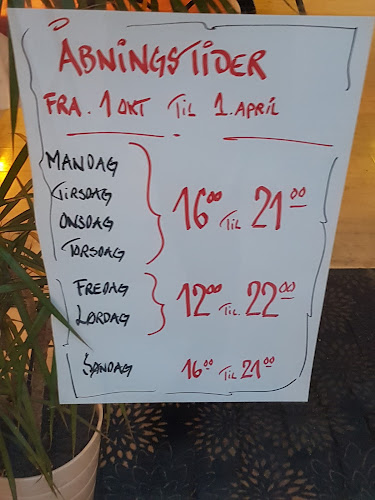 ÅBNINGSTIDER
FRA. 1 OKT TIL 1. APRIL
MANDAG
TIRSDAG
ONSDAG
TORSDAG
16⁰⁰ TIL 21⁰⁰
FREDAG
LØRDAG
12⁰⁰ TIL. 22⁰⁰
SØNDAG 16⁰⁰ TIL 21⁰⁰